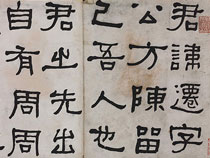 君諱遷字
公方陳留
己吾人也
君之先出
自有周周